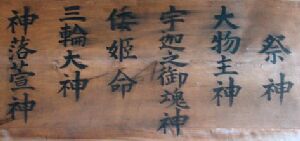 祭神
大物主神
宇迦之御塊神
倭姫命
三輪大神
神落萱神